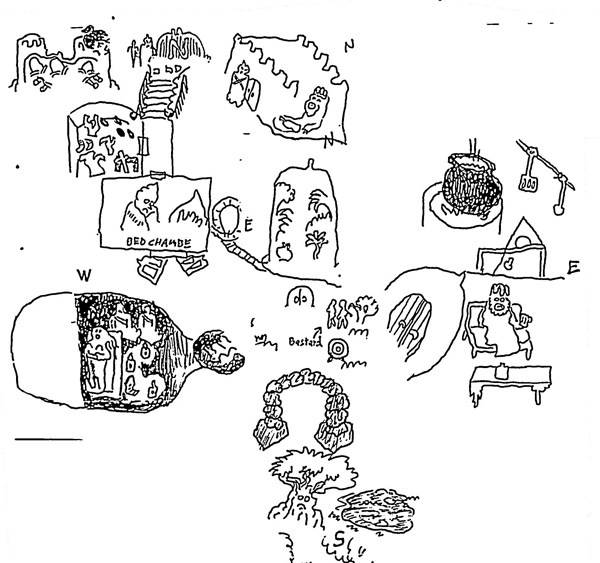 N
N
E
BED CHAMBE
W
E
Bastard
S